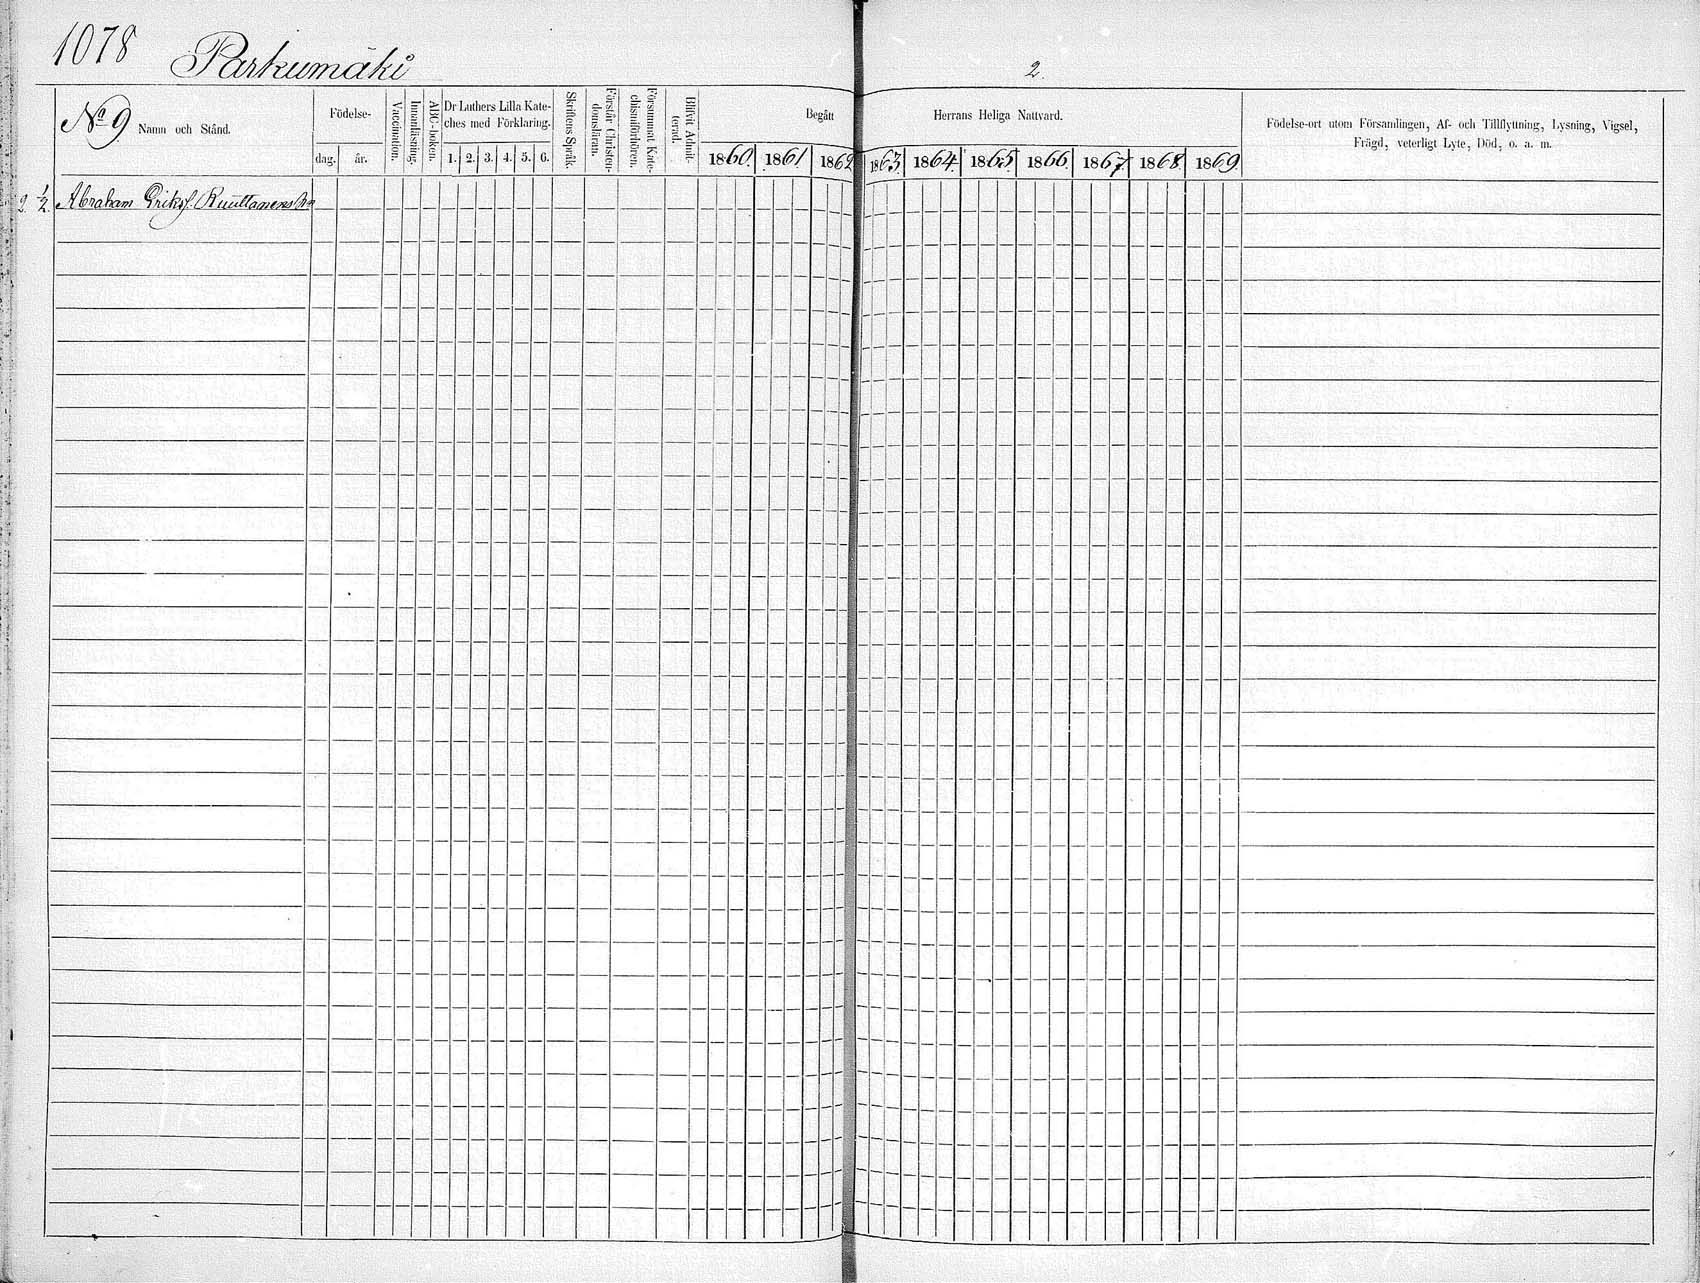 1078 Parkumäki
2.
No 9 Namn och Stånd.
Födelse-
dag. år.
Vaccination.
Innanläsning.
ABC-boken.
Dr Luthers Lilla Kate-
ches med Förklaring.
1. 2. 3. 4. 5. 6.
Skriftens Språk.
Förstår Christen-
domsläran.
Försummat Kate-
chismiförhören.
Blifvit Admit-
terad.
Begått Herrans Heliga Nattvard.
1860. 1861 1862 1863. 1864. 1865 1866. 1867 1868. 1869.
Födelse-ort utom Församlingen, Af- och Tillflyttning, Lysning, Vigsel,
Frägd, veterligt Lyte, Död, o. a. m.
2. 1/2. Abraham Erikss. Ruuttanens